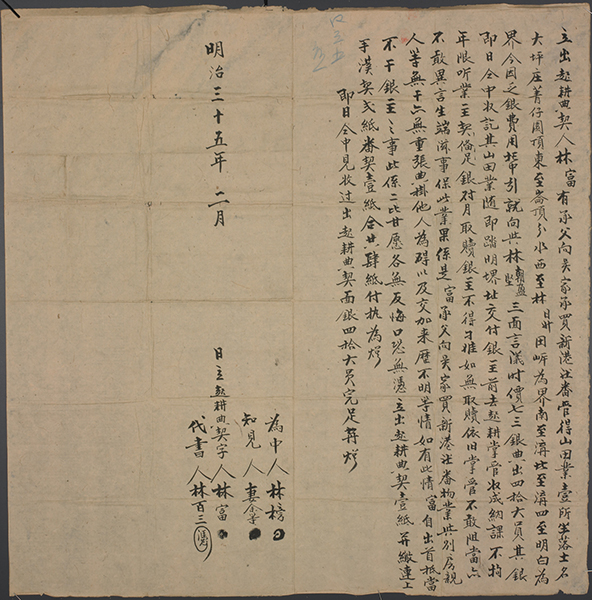 立出起耕典契人林富有承父向吳家承買新港社番管得山田業壹所坐落土名
大坪庄菁仔園頂東至崙頂分水西至林日廾田岓為界南至溝北至溝四至明白為
界今因乏銀費用托中引就向與林三面言議時價七三銀典出四拾大員其銀
即日仝中收訖其山田業隨即踏明界址交付銀主前去起耕掌管收成納課不拘
年限听業主契俻足銀对月取贖銀主不得刁难如無取贖依旧掌管不敢阻當亦
不敢異言生端滋事保此業果係是富承父向吳家買新港社番物業與別房親
人等無干亦無重張典掛他人為碍以及交加来歷不明等情如有此情富自出首抵當
不干銀主之事此係二比甘愿各無反悔口恐無憑立出起耕典契壹紙并繳連上
手漢契弍紙番契壹紙合共肆紙付执為炤
即日仝中見收过出起耕典契面銀四拾大員完足再炤
明治三十五年二月
為中人林榜
知見人妻余
日立起耕典契字人林富
代書人林百三